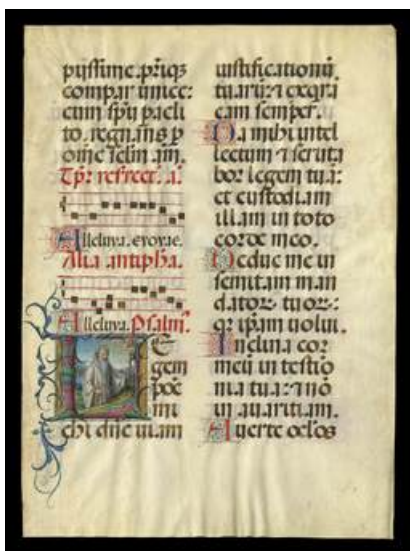 piissime. p̄riq̄s
compar unice:
cum sp̄u p̄acli
to. regnans p
om̄e seculum. am̄.
Alleluya. evovae.
Alia antipha.
Alleluya. Psalm̄.
Legem
pōe
mi
chi dn̄e uiam
iustificationū
tuarū: ⁊ exq̄ra
eam semper.
Da mihi intel
lectum ⁊ scruta
bor legem tuā:
et custodiam
illam in toto
corde meo.
Deduc me in
semitam man
datoꝝ tuoꝝ:
qꝛ ip̄am uolui.
Inclina cor
meū in testio
nia tua: ⁊ nō
in auaritiam.
Auerte oc̄los